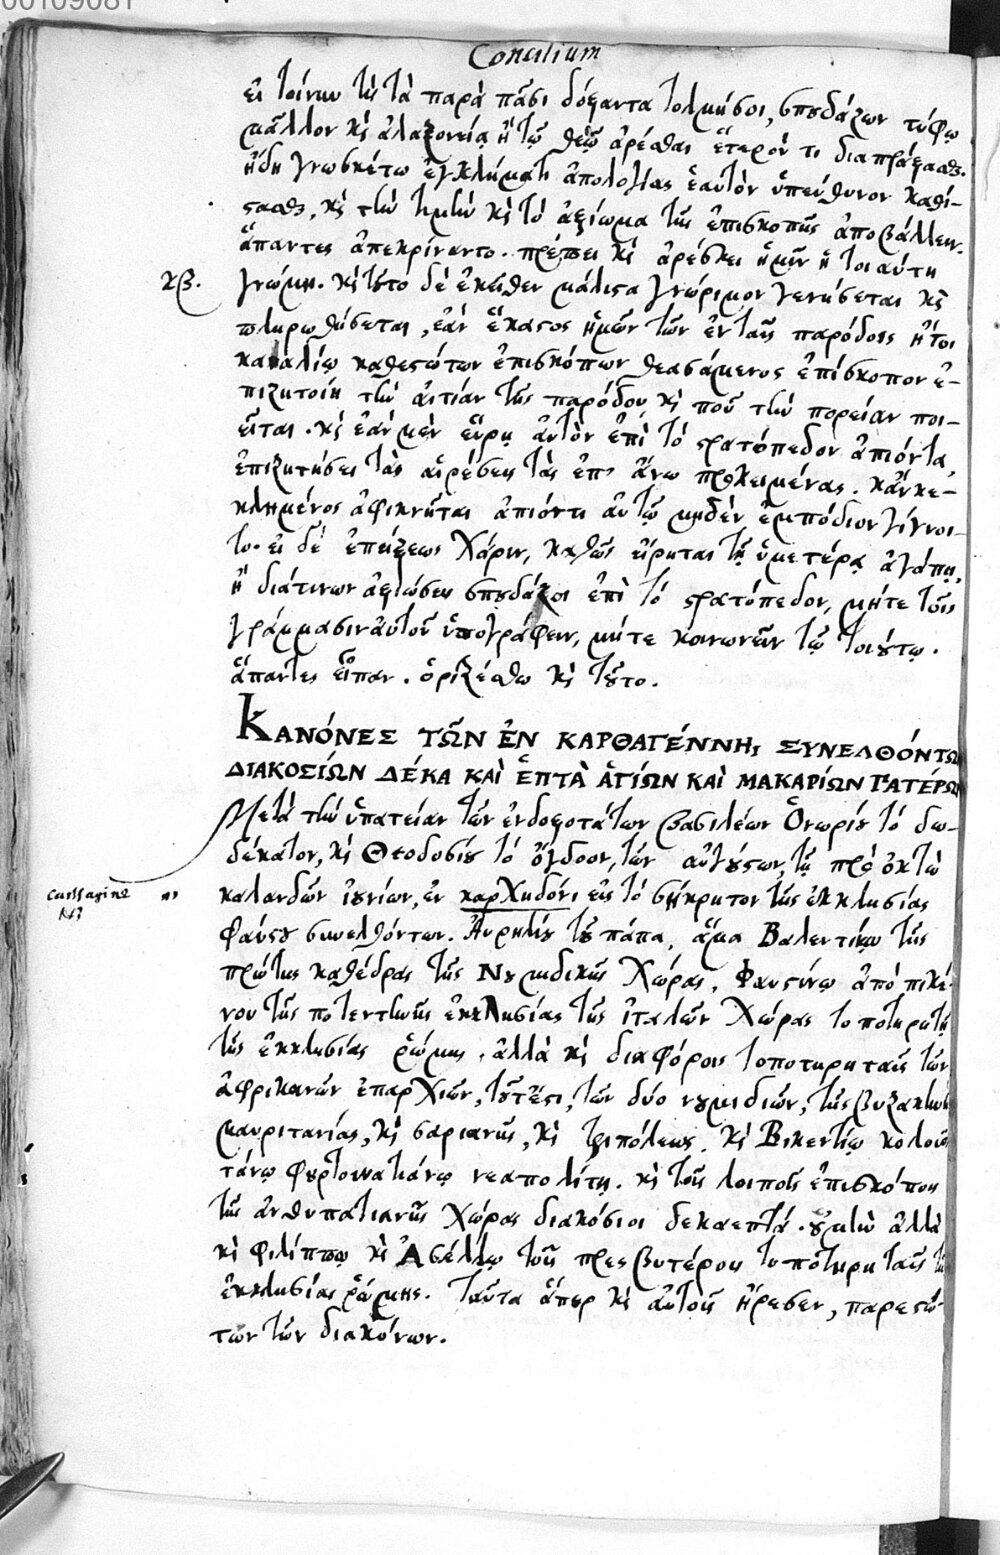 00109081
Concilium
εἰ τοίνυν τίς τὰ παρὰ πᾶσι δόξαντα τολμήσοι, σπουδάζων τύφῳ
μᾶλλον καὶ ἀλαζονείᾳ ἢ τῷ θεῷ ἀρέσθαι ἕτερόν τι διαπράξασθαι.
ἤδη γνωσκέτω ἐγκλήματι ἀπολογίας ἑαυτὸν ὑπεύθυνον καθί-
στασθαι, καὶ τὴν τιμὴν καὶ τὸ ἀξίωμα τῆς ἐπισκοπῆς ἀποβάλλειν.
ἅπαντες ἀπεκρίναντο. πρέπει καὶ ἀρέσκει ἡμῖν ἡ τοιαύτη
κβ. γνώμη. καὶ τοῦτο δὲ ἐκεῖθεν μάλιστα γνώριμον γενήσεται καὶ
πληρωθήσεται, ἐάν ἕκαστος ἡμῶν τῶν ἐν ταῖς παρόδοις ἤτοι
καναλίῳ καθεστώτων ἐπισκόπων θεασάμενος ἐπίσκοπον ἐ-
πιζητοίη τὴν αἰτίαν τῆς παρόδου καὶ ποῦ τὴν πορείαν ποι-
εῖται. καὶ ἐὰν μὲν εὕρῃ αὐτὸν ἐπὶ τὸ στρατόπεδον ἀπιόντα,
ἐπιζητήσει τὰς αἱρέσεις τὰς ἐπ' ἄνω προκειμένας. κἄν κε-
κλημένος ἀφικνῆται ἀπιόντι αὐτῷ μηδὲν ἐμπόδιον γίγνοι-
το. εἰ δὲ ἐπείξεως χάριν, καθὼς εἴρηται τῇ ὑμετέρᾳ ἀγάπῃ,
ἢ διά τινων ἀξιώσεις σπουδάζοι ἐπὶ τὸ στρατόπεδον, μήτε τοῖς
γράμμασιν αὐτοῦ ὑπογράφειν, μήτε κοινωνεῖν τῷ τοιούτῳ.
ἅπαντες εἶπαν. ὁριζέσθω καὶ τοῦτο.
ΚΑΝΌΝΕΣ ΤΩ͂Ν ἘΝ ΚΑΡΘΑΓΈΝΝΗΙ ΣΥΝΕΛΘΌΝΤΩΝ
ΔΙΑΚΟΣΊΩΝ ΔΈΚΑ ΚΑῚ ἙΠΤᾺ ἉΓΊΩΝ ΚΑῚ ΜΑΚΑΡΊΩΝ ΠΑΤΈΡΩΝ
Μετὰ τὴν ὑπατείαν τῶν ἐνδοξοτάτων βασιλέων Ὁνωρίου τὸ δω-
δέκατον, καὶ Θεοδοσίου τὸ ὄγδοον, τῶν αὐγούστων, τῇ πρὸ ὀκτὼ
Carthagine καλανδῶν ἰουνίων, ἐν καρχηδόνι εἰς τὸ σήκρητον τῆς ἐκκλησίας
φαύστου συνελθόντων. Αὐρηλίου τοῦ πάπα, ἅμα Βαλεντίνῳ τῆς
πρώτης καθέδρας τῆς Νουμιδικῆς χώρας, Φαυστίνῳ ἀπὸ πικέ-
νου τῆς ποτεντίνης ἐκκλησίας τῆς ἰταλῶν χώρας τοποτηρητῇ
τῆς ἐκκλησίας ῥώμης. ἀλλὰ καὶ διαφόροις τοποτηρηταῖς τῶν
ἀφρικανῶν ἐπαρχιῶν, τουτέστι, τῶν δύο νουμιδιῶν, τῆς βυζακηνῆς
μαυριτανίας, καὶ σαριανῆς, καὶ τριπόλεως, καὶ Βικεντίῳ κολουσι
τάνῳ φουρτουνατιάνῳ νεαπολίτῃ. καὶ τοῖς λοιποῖς ἐπισκόποις
τῆς ἀνθυπατιανῆς χώρας διακόσιοι δεκαεπτά. οὐ μὴν ἀλλὰ
καὶ φιλίππῳ καὶ Ἀσέλλῳ τοῖς πρεσβυτέροις τοποτηρηταῖς τῆς
ἐκκλησίας ῥώμης. ταῦτα ἅπερ καὶ αὐτοῖς ἤρεσεν, παρεστώ-
των τῶν διακόνων.